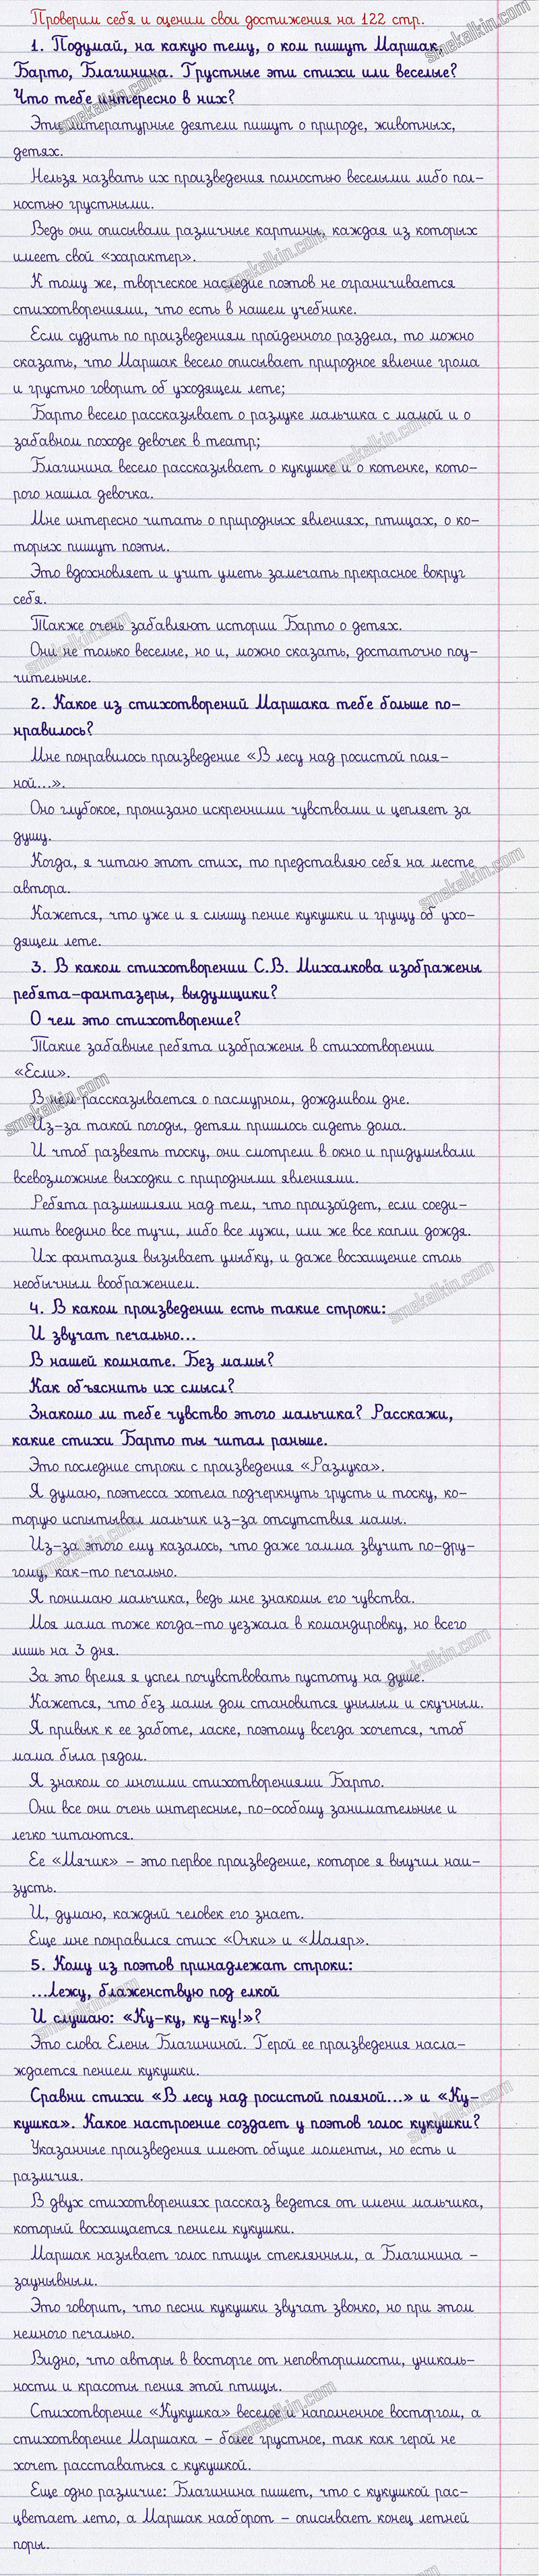 Проверим себя и оценим свои достижения на 122 стр.
1. Подумай, на какую тему, о ком пишут Маршак,
Барто, Благинина. Грустные эти стихи или веселые?
Что тебе интересно в них?
Эти литературные деятели пишут о природе, животных,
детях.
Нельзя назвать их произведения полностью веселыми либо пол-
ностью грустными.
Ведь они описывали различные картины, каждая из которых
имеет свой «характер».
К тому же, творческое наследие поэтов не ограничивается
стихотворениями, что есть в нашем учебнике.
Если судить по произведениям пройденного раздела, то можно
сказать, что Маршак весело описывает природное явление грома
и грустно говорит об уходящем лете;
Барто весело рассказывает о разлуке мальчика с мамой и о
забавном походе девочек в театр;
Благинина весело рассказывает о кукушке и о котенке, кото-
рого нашла девочка.
Мне интересно читать о природных явлениях, птицах, о ко-
торых пишут поэты.
Это вдохновляет и учит уметь замечать прекрасное вокруг
себя.
Также очень забавляют истории Барто о детях.
Они не только веселые, но и, можно сказать, достаточно поу-
чительные.
2. Какое из стихотворений Маршака тебе больше по-
нравилось?
Мне понравилось произведение «В лесу над росистой поля-
ной...».
Оно глубокое, пронизано искренними чувствами и цепляет за
душу.
Когда, я читаю этот стих, то представляю себя на месте
автора.
Кажется, что уже и я слышу пение кукушки и грущу об ухо-
дящем лете.
3. В каком стихотворении С.В. Михалкова изображены
ребята-фантазеры, выдумщики?
О чем это стихотворение?
Такие забавные ребята изображены в стихотворении
«Если».
В нем рассказывается о пасмурном, дождливом дне.
Из-за такой погоды, детям пришлось сидеть дома.
И чтоб развеять тоску, они смотрели в окно и придумывали
всевозможные выходки с природными явлениями.
Ребята размышляли над тем, что произойдет, если соеди-
нить воедино все тучи, либо все лужи, или же все капли дождя.
Их фантазия вызывает улыбку, и даже восхищение столь
необычным воображением.
4. В каком произведении есть такие строки:
И звучат печально...
В нашей комнате. Без мамы?
Как объяснить их смысл?
Знакомо ли тебе чувство этого мальчика? Расскажи,
какие стихи Барто ты читал раньше.
Это последние строки с произведения «Разлука».
Я думаю, поэтесса хотела подчеркнуть грусть и тоску, ко-
торую испытывал мальчик из-за отсутствия мамы.
Из-за этого ему казалось, что даже гамма звучит по-дру-
гому, как-то печально.
Я понимаю мальчика, ведь мне знакомы его чувства.
Моя мама тоже когда-то уезжала в командировку, но всего
лишь на 3 дня.
За это время я успел почувствовать пустоту на душе.
Кажется, что без мамы дом становится унылым и скучным.
Я привык к ее заботе, ласке, поэтому всегда хочется, чтоб
мама была рядом.
Я знаком со многими стихотворениями Барто.
Они все они очень интересные, по-особому занимательные и
легко читаются.
Ее «Мячик» - это первое произведение, которое я выучил наи-
зусть.
И, думаю, каждый человек его знает.
Еще мне понравился стих «Очки» и «Маляр».
5. Кому из поэтов принадлежат строки:
...Лежу, блаженствую под елкой
И слушаю: «Ку-ку, ку-ку!»?
Это слова Елены Благининой. Герой ее произведения насла-
ждается пением кукушки.
Сравни стихи «В лесу над росистой поляной...» и «Ку-
кушка». Какое настроение создает у поэтов голос кукушки?
Указанные произведения имеют общие моменты, но есть и
различия.
В двух стихотворениях рассказ ведется от имени мальчика,
который восхищается пением кукушки.
Маршак называет голос птицы стеклянным, а Благинина -
заунывным.
Это говорит, что песни кукушки звучат звонко, но при этом
немного печально.
Видно, что авторы в восторге от неповторимости, уникаль-
ности и красоты пения этой птицы.
Стихотворение «Кукушка» веселое и наполненное восторгом, а
стихотворение Маршака - более грустное, так как герой не
хочет расставаться с кукушкой.
Еще одно различие: Благинина пишет, что с кукушкой рас-
цветает лето, а Маршак наоборот - описывает конец летней
поры.